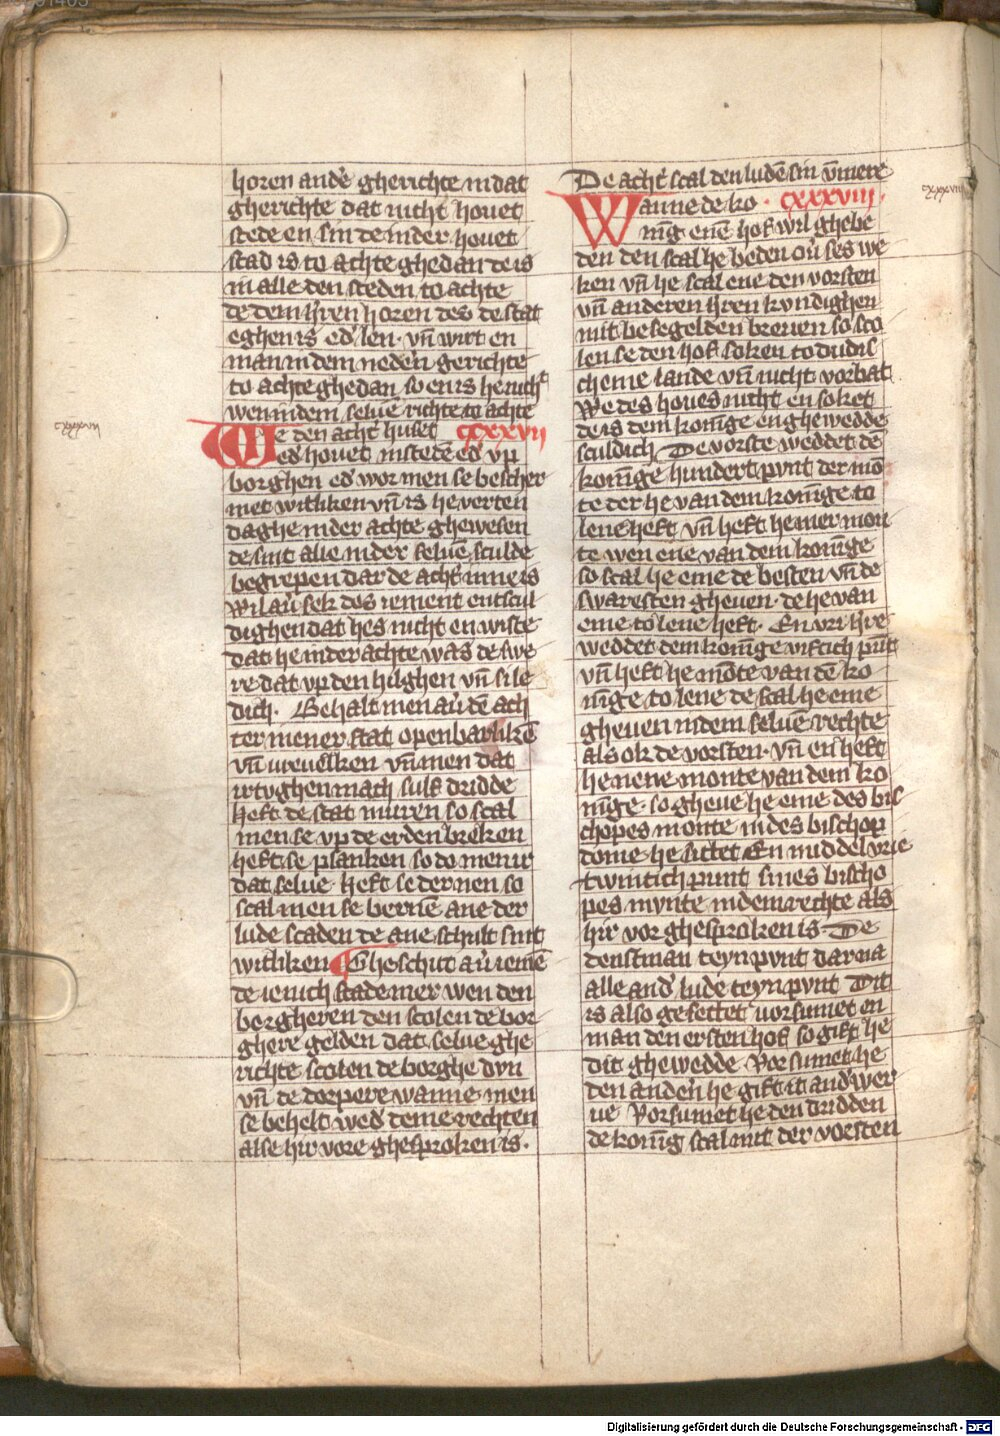 horen ander gherichte in dat
gherichte dat nicht houet
stede en sin de in der houet
stad is to achte ghedan de is
in alle den steden to achte
de dem hren horen des de stat
eghen is ed' len. vn̄ wirt en
man in dem neder̄ gerichte
to achte ghedan so en is he nicht
wen in dem seluē richte to achte
We den acht' huset ccxxxvii
cxxxvii
ed' houet in stedē ed' vp
borghen ed' wor men se bescher
met witliken vn̄ is he verten
daghe in der achte ghewesen
de sint alle in der seluē sculde
begrepen dar de acht' inne is
Wil au' sek des iement entscul
dighen dat hes nicht en wiste
dat he in der achte was de swe
re dat vp den hilghen vn̄ si le
dich. Behalt men au' dē ach
ter in ener stat openbarlikē
vn̄ wuelken vn̄ men dat
irtvghen mach sulf dridde
heft de stat muren so scal
men se vp de erden breken
heft se planken so do men ir
dat selue heft se der nen so
scal men se bernē ane der
lude scaden de ane schult sint
witliken Gheschut au' iemē
de ienich stade mer wen den
borgheren den scolen de bor
ghere gelden dat selue ghe
richte scolen de borghe dvn
vn̄ de dorpere wanne men
se behelt wed' deme rechten
alse hir vore ghesproken is.
De acht' scal den ludē sin vn̄mere
Wanne de ko cxxxviii.
cxxxviii
nīg enē hof wil ghebe
den den scal he beden ou' ses we
ken vn̄ he scal ene den vorsten
vn̄ anderen hren kvndighen
mit besegelden breuen so sco
len se den hof soken to dudis
cheme lande vn̄ nicht vorbat
We des houes nicht en soket
de is dem konīge en ghewedde
sculdich De vorste weddet de
konīge hundert pvnt der mō
te der he van dem konīge to
lene heft vn̄ heft he mer mon
te wen ene van dem konīge
so scal he eme de besten vn̄ de
swaresten gheuen. de he van
eme to lene heft. En vri hre
weddet dem konīge viftich pūt
vn̄ heft he mōte van dē ko
nīge to lene de scal he eme
gheuen in dem seluē rechte
als ok de vorsten. vn̄ en heft
he nene monte van dem ko
nīge. so gheue he eme des bis
chopes monte in des bischop
dome he sittet En middel vrie
twintich punt sines bischo
pes mvnte in dem rechte als
hir vor ghesproken is De
denstman teyn pvnt dar na
alle and' lude teyn pvnt Dit
is also gesettet vorsumet en
man den ersten hof so gift he
dit ghewedde Vorsumet he
den ander̄ he gift it and'wer
ue Vorsumet he den dridden
de konīg scal mit der vorsten
Digitalisierung gefördert durch die Deutsche Forschungsgemeinschaft - DFG